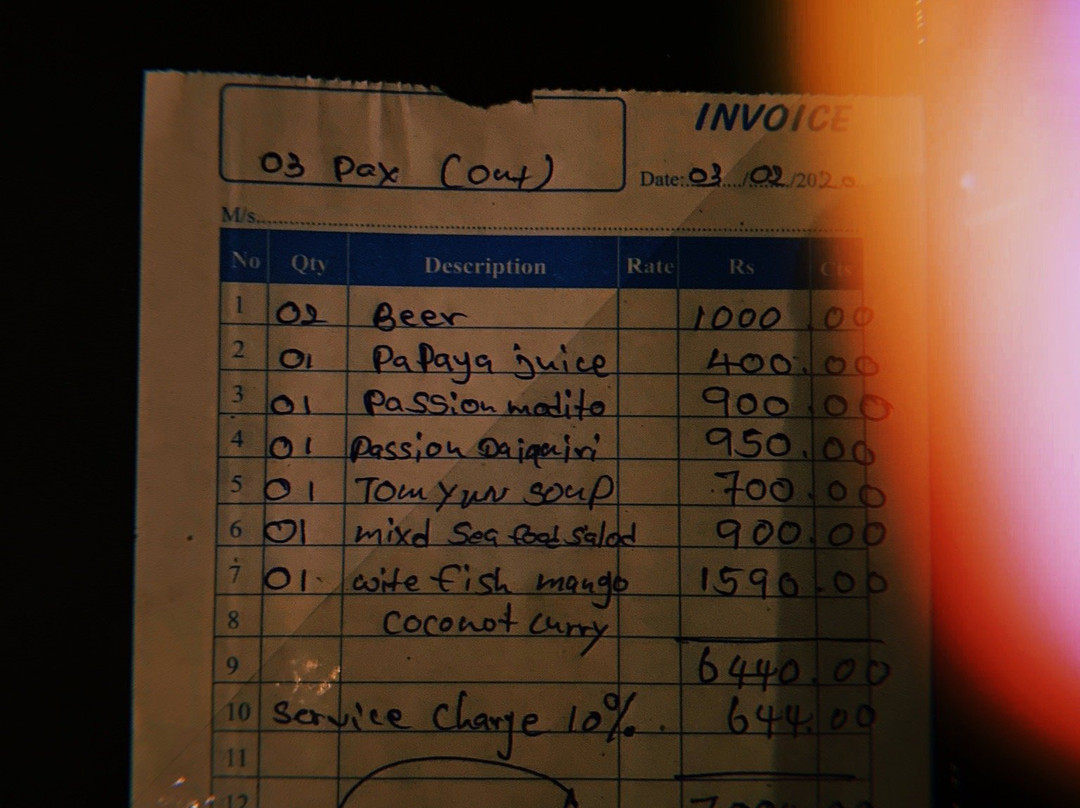 INVOICE
03 Pax (Out)
Date: 03 / 02 / 2020
M/s
No Qty Description Rate Rs Cts
1 02 Beer 1000.00
2 01 Papaya juice 400.00
3 01 Passion modito 900.00
4 01 Passion Daiquiri 950.00
5 01 Tom yun soup 700.00
6 01 mixd Sea food Salad 900.00
7 01 wite fish mango 1590.00
8 coconot curry
9 6440.00
10 Service Charge 10% 644.00
11
12